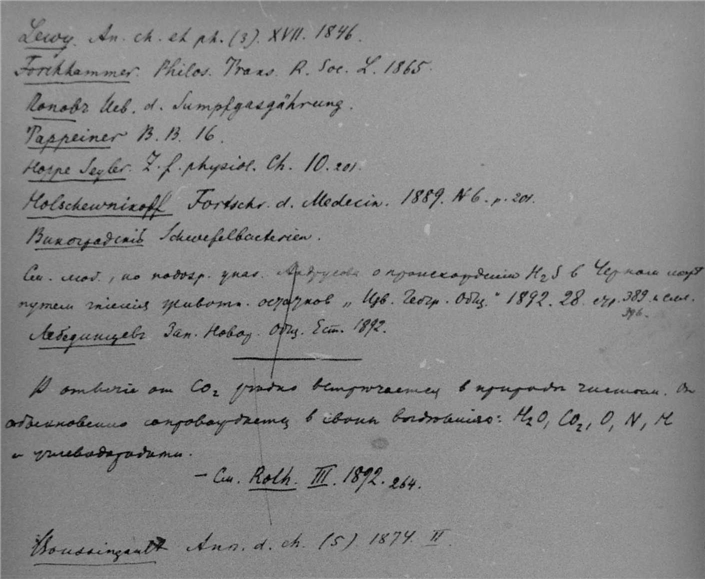 Lewy. An. ch. et ph. (3). XVII. 1846.
Forchhammer. Philos. Trans. R. Soc. L. 1865.
Поповъ Ueb. d. Sumpfgasgährung.
Tappeiner B. B. 16.
Hoppe Seyler. Z. f. physiol. Ch. 10. 201.
Holschewnikoff Fortschr. d. Medecin. 1889. N 6. p. 201.
Виноградскій Schwefelbacterien.
См. . Андрусова о происхожденіи H2S в Черном морѣ
путем гніенія животн. остатков „ Изв. Геогр. Общ." 1892. 28. стр. 389. и слѣд.
396.
Лебединцевъ Зап. Новор. Общ. Ест. 1892.
В отличіе от CO2 рѣдко встрѣчается в природѣ чистым. Он
обыкновенно сопровождается в своих выдѣленіях: H2O, CO2, O, N, H
и углеводородами.
— См. Roth. III. 1892. 264.
Boussingault Ann. d. ch. (5). 1874. II.